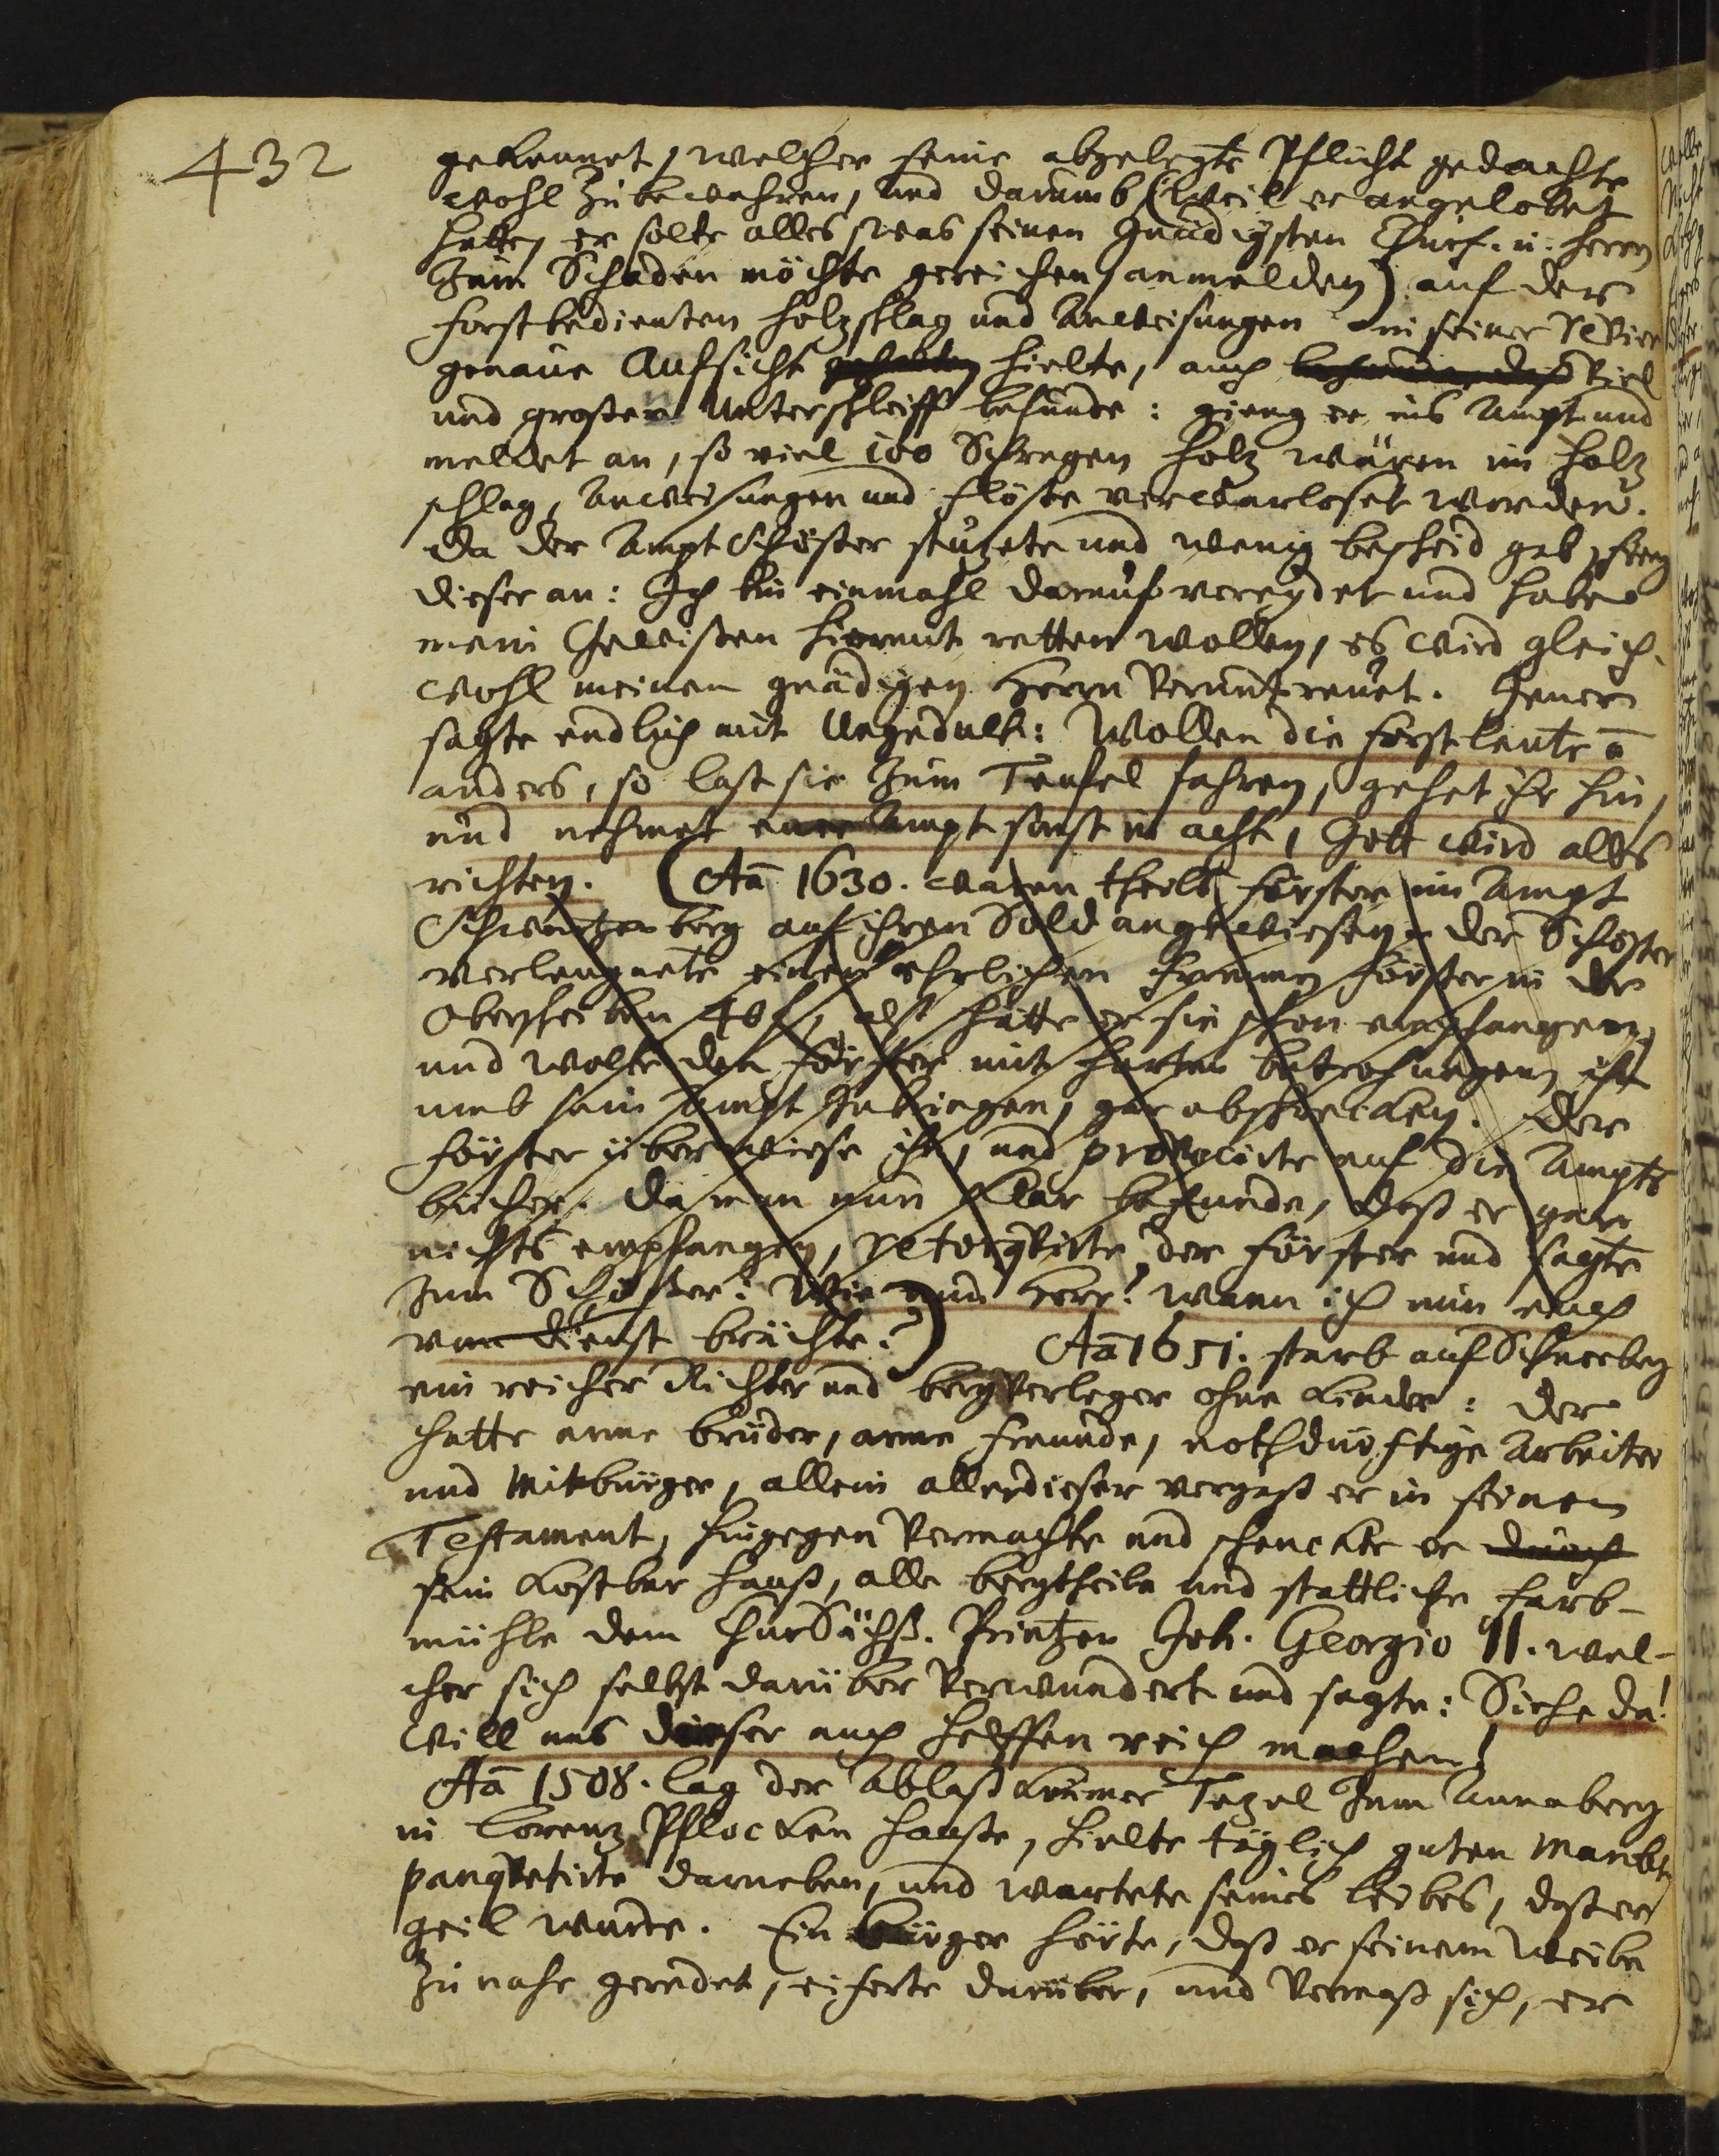 432
gekennet, welcher seine abgelegte Pflicht gedachte
wohl zu bewahren, und darumb (weil er angelobet
hatte, er solte alles, was seinen Gnädigsten Churf. u. Herrn
zum Schaden möchte gereichen, anmelden) auf der
Forstbedienten Holzschlag und Anweisungen in seiner Revier
genaue Aufsicht hielte, auch viel
und grossen Unterschleiff befunde: gieng er ins Ampt und
meldet an, so viel 100 Schragen Holz wären im Holz
schlag, Anweisungen und Flösse verwarloset worden.
Da der Ampt Schösser stuzete und wenig bescheid gab, fieng
dieser an: Ich bin einmahl darauf vereydet und habe
mein Gewissen hiermit retten wollen, es wird gleich-
wohl meinem gnädigen Herrn veruntreuet. Jener
sagte endlich mit Ungedult: Wollen die Forstleute ō
anders, so last sie zum Teufel fahren, gehet ihr hin,
und nehmet euer Ampt sonst in acht, Gott wird alles
richten. (Aō 1630. waren theils Förster im Ampt
Schwartzenberg auf ihren Sold angewiesen, der Schösser
verleugnete einem ehrlichen frommen Förster in der
Oberscheiben 40 f, alß hätte er sie schon empfangen,
und wolte den Förster mit harten betrohungen, ihn
umb sein Ampt zubringen, gar abschrecken. Der
Förster überwiese ihn, und provocirte auf die Ampts
bücher. Da man nun klar befunde, daß er gar
nichts empfangen, retorqvirte der Förster und sagte
zum Schösser: Wie nun Herr? wann ich nun euch
vom Dienst brächte?) Aō 1651. starb auf Schneeberg
ein reicher Richter und bergverleger ohne Kinder: der
hatte arme brüder, arme Freunde, nothdürftige Arbeiter
und Mitbürger, allein aller dieser vergaß er in seinem
Testament, hingegen vermachte und schenckte er durch
sein kostbar Hauß, alle bergtheile und stattliche Farb-
mühle dem ChurSächß. Printzen Joh. Georgio II. wel-
cher sich selbst darüber verwundert und sagte: Siehe da!
will uns dieser auch helffen reich machen!
Aō 1508. lag der Ablaß Krämer Tezel zum Annaberg
in Lorenz Pflocken Hause, hielte täglich guten Marckt,
panqvetirte darneben, und wartete seines Leibes, daß er
geil wurde. Ein bürger hörte, daß er seinem Weibe
zu nahe geredet, eiferte darüber, und vermaß sich, er